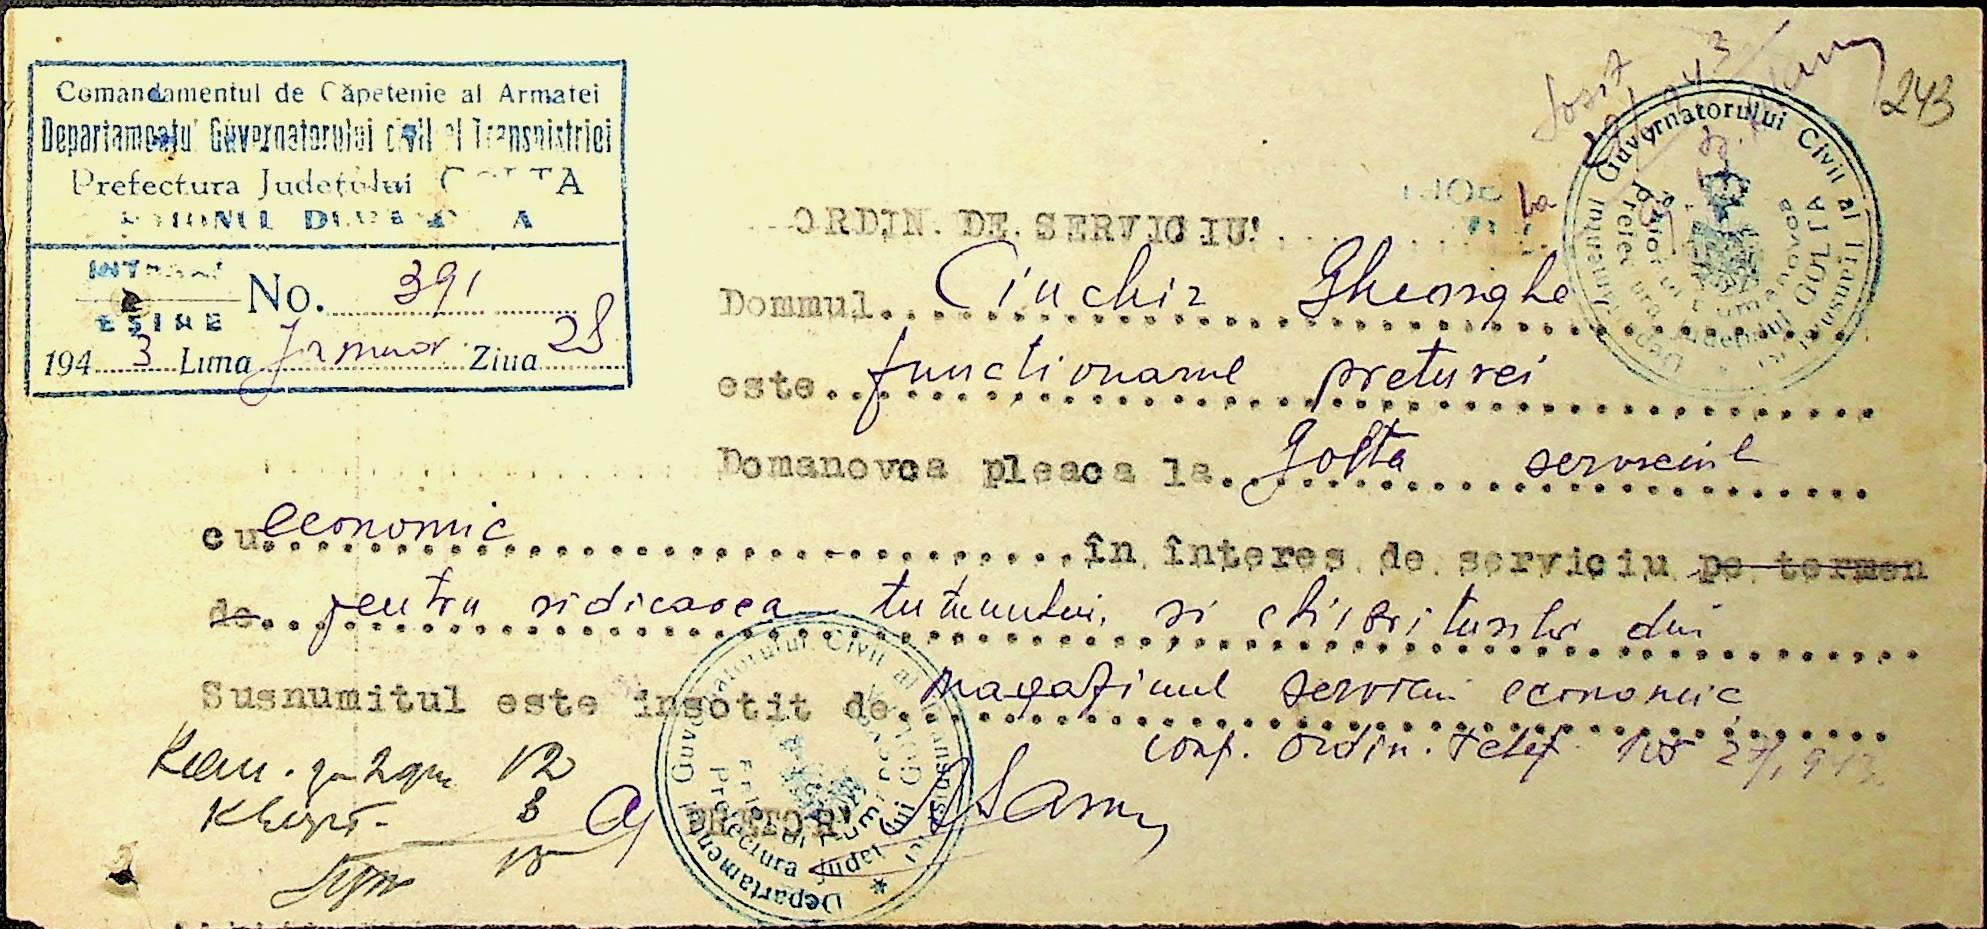 Comandamentul de Căpetenie al Armatei
Departamentul Guvernatorului civil al Transnistriei
Prefectura Județului GOLTA
INTRARE
No. 391
EȘIRE
194 3 Luna Januar Ziua 28
Sosit
243
Departamentul Guvernatorului Civil al Transnistriei
Prefectura Județului GOLTA
ORDIN DE SERVICIU
Dommul Ciuchir Gheorghe
este functionarul preturei
Domanovca pleaca la Golta serviciul
cu economic în înteres de serviciu pe termen
de pentru ridicarea tutunului si chibriturilor din
Susnumitul este însotit de magazinul serviciu economic
conf. ordin. telef. 27/1 943
12
3
15
PRETOR
Departamentul Guvernatorului Civil al Transnistriei
Prefectura Județului GOLTA